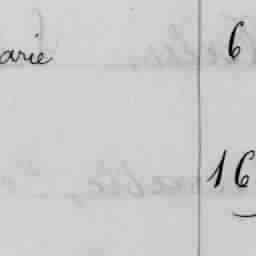 arie 6
16